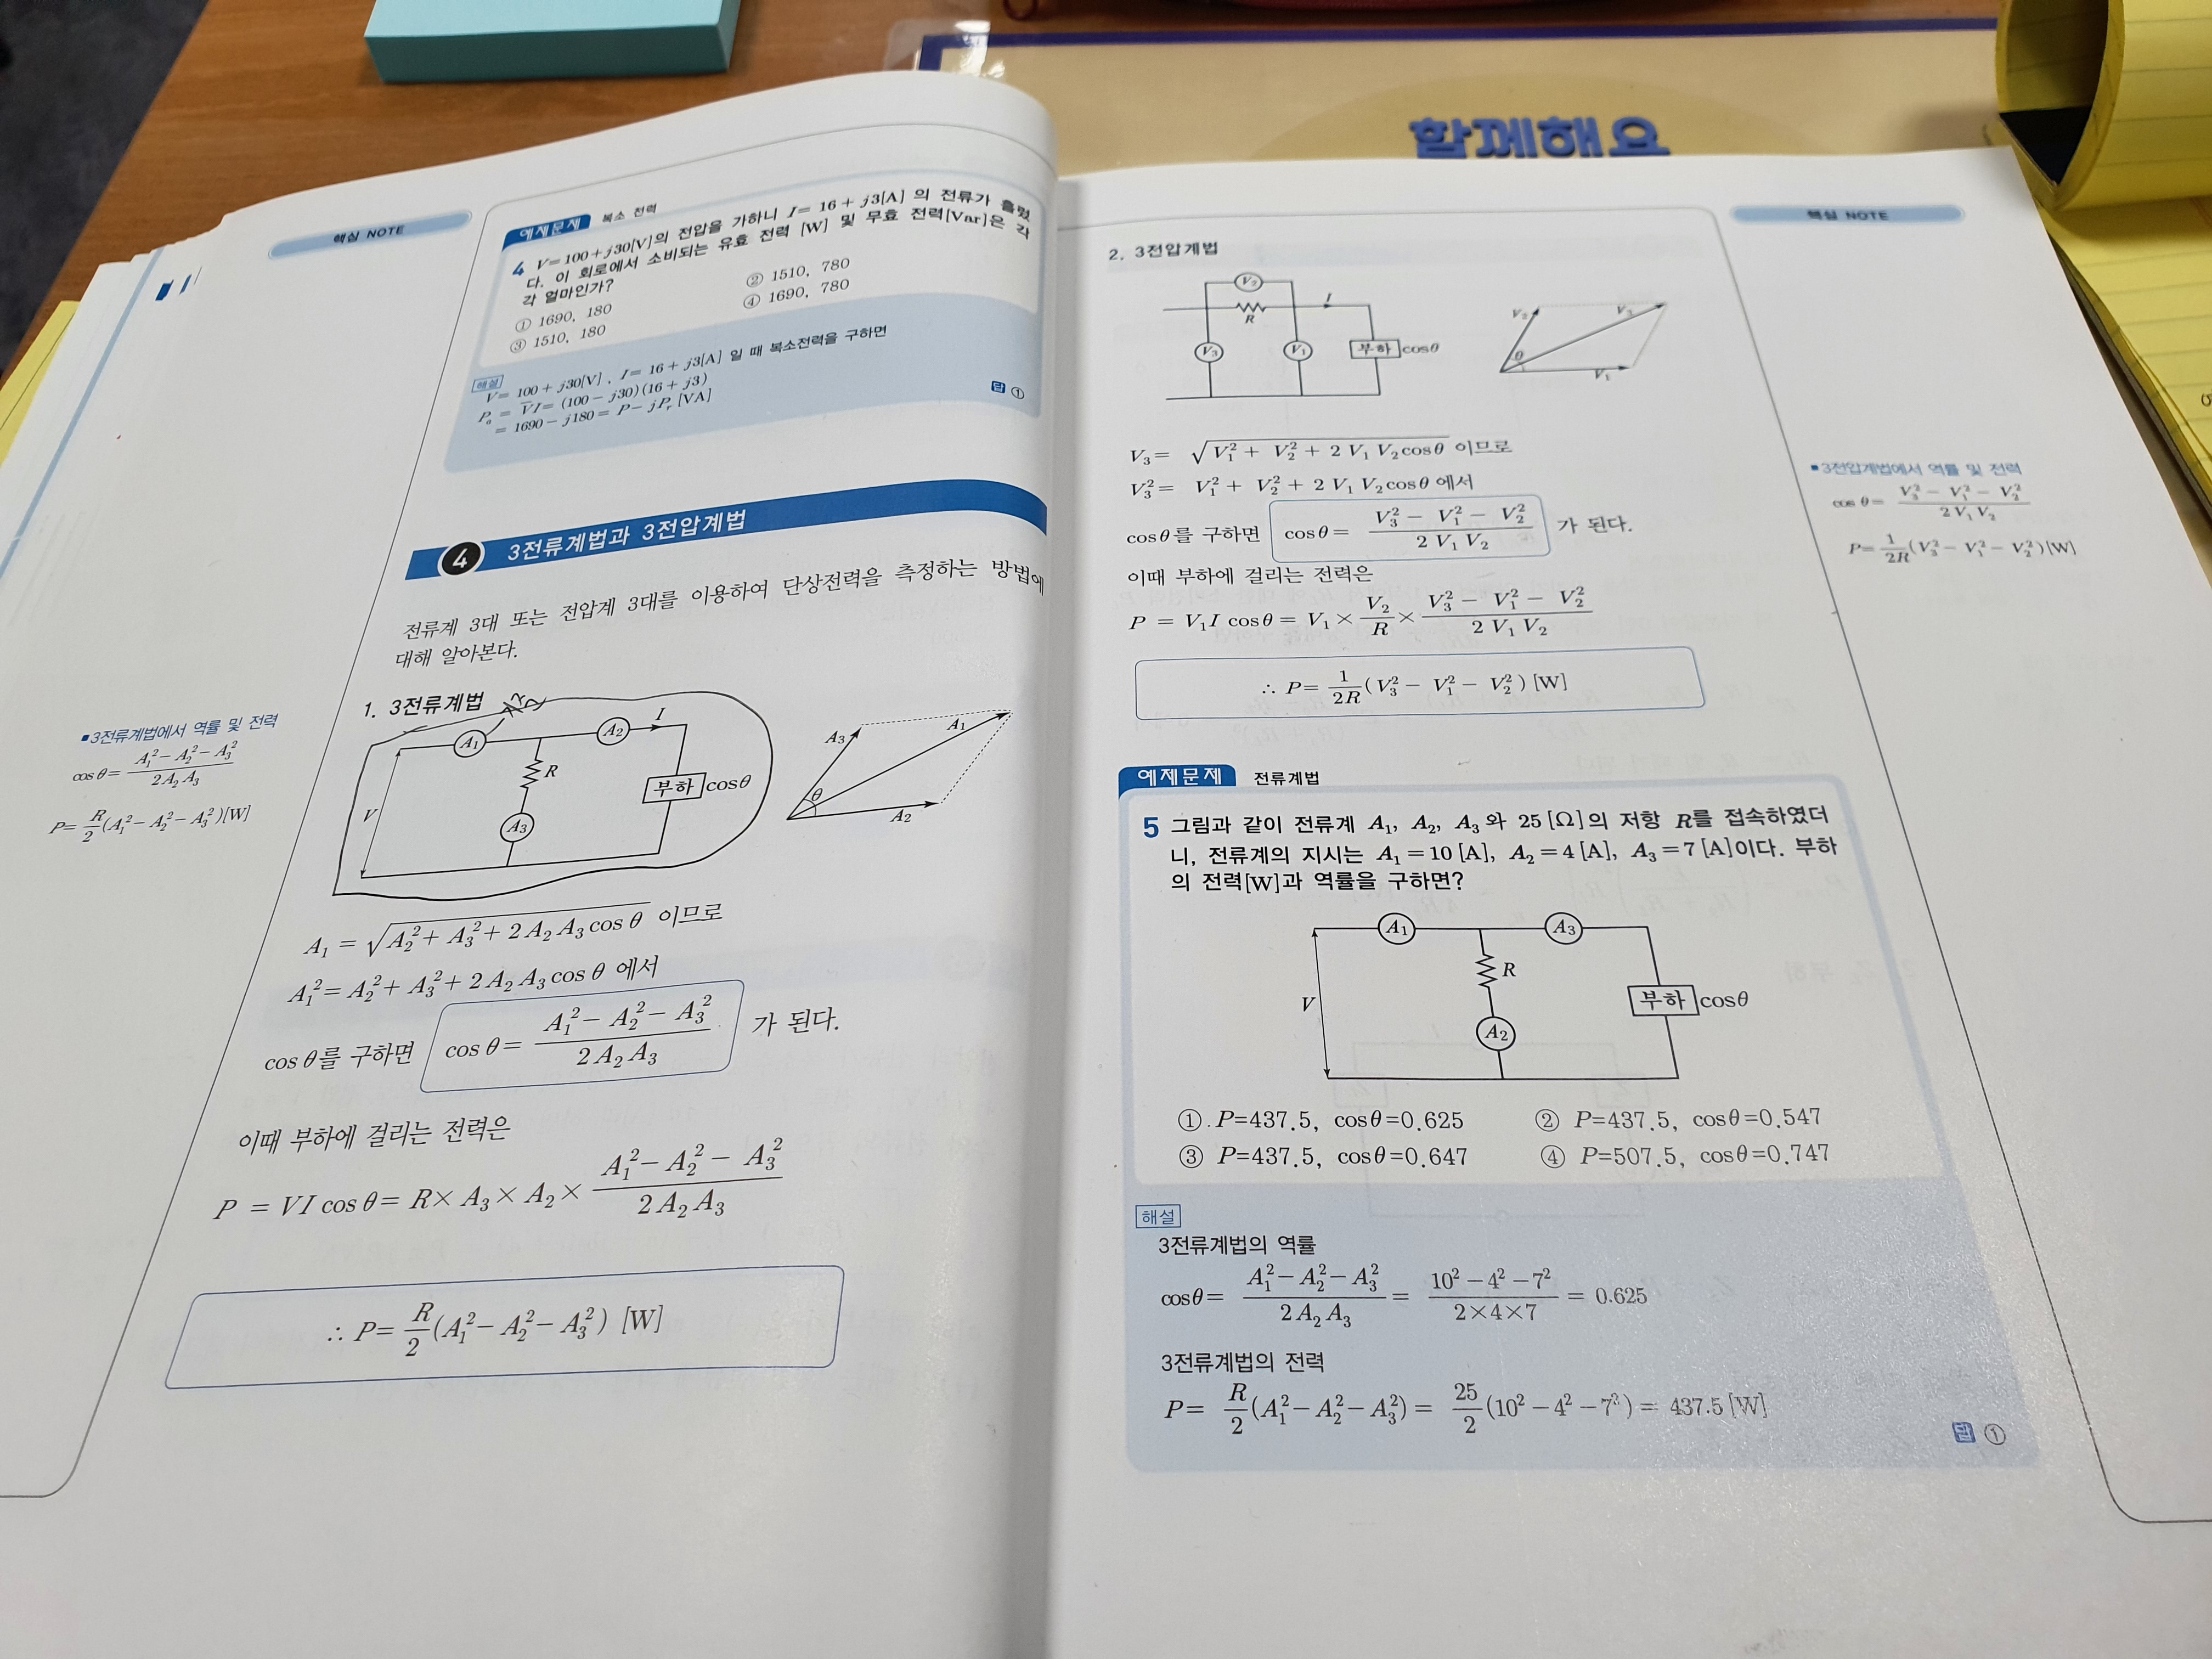 함께해요
핵심 NOTE
예제문제 복소 전력
4 V=100+j30[V]의 전압을 가하니 I=16+j3[A] 의 전류가 흘렀
다. 이 회로에서 소비되는 유효 전력 [W] 및 무효 전력[Var]은 각
각 얼마인가?
① 1690, 180 ② 1510, 780
③ 1510, 180 ④ 1690, 780
해설
V= 100+j30[V] , I= 16+j3[A] 일 때 복소전력을 구하면
Pₐ = V̅I= (100-j30)(16+j3)
= 1690-j180 = P-jPᵣ [VA]
답 ①
4 3전류계법과 3전압계법
전류계 3대 또는 전압계 3대를 이용하여 단상전력을 측정하는 방법에
대해 알아본다.
1. 3전류계법
A₁ A₂ I
R
V
A₃
부하 cosθ
A₃ A₁
θ
A₂
■3전류계법에서 역률 및 전력
cosθ= (A₁²-A₂²-A₃²)/(2A₂A₃)
P= R/2(A₁²-A₂²-A₃²)[W]
A₁ = √(A₂²+A₃²+2A₂A₃cosθ) 이므로
A₁²= A₂²+A₃²+2A₂A₃cosθ 에서
cosθ를 구하면 cosθ= (A₁²-A₂²-A₃²)/(2A₂A₃) 가 된다.
이때 부하에 걸리는 전력은
P = VI cosθ= R×A₃×A₂× (A₁²-A₂²-A₃²)/(2A₂A₃)
∴ P= R/2(A₁²-A₂²-A₃²) [W]
핵심 NOTE
2. 3전압계법
V₂
R I
V₃ V₁ 부하 cosθ
V₂ V₃
θ
V₁
V₃= √(V₁²+V₂²+2V₁V₂cosθ) 이므로
V₃²= V₁²+V₂²+2V₁V₂cosθ 에서
cosθ를 구하면 cosθ= (V₃²-V₁²-V₂²)/(2V₁V₂) 가 된다.
이때 부하에 걸리는 전력은
P = V₁I cosθ = V₁× V₂/R × (V₃²-V₁²-V₂²)/(2V₁V₂)
∴ P= 1/2R(V₃²-V₁²-V₂²) [W]
■3전압계법에서 역률 및 전력
cosθ= (V₃²-V₁²-V₂²)/(2V₁V₂)
P= 1/2R(V₃²-V₁²-V₂²)[W]
예제문제 전류계법
5 그림과 같이 전류계 A₁, A₂, A₃와 25[Ω]의 저항 R를 접속하였더
니, 전류계의 지시는 A₁=10[A], A₂=4[A], A₃=7[A]이다. 부하
의 전력[W]과 역률을 구하면?
A₁ A₃
R
V 부하 cosθ
A₂
① P=437.5, cosθ=0.625 ② P=437.5, cosθ=0.547
③ P=437.5, cosθ=0.647 ④ P=507.5, cosθ=0.747
해설
3전류계법의 역률
cosθ= (A₁²-A₂²-A₃²)/(2A₂A₃) = (10²-4²-7²)/(2×4×7) = 0.625
3전류계법의 전력
P= R/2(A₁²-A₂²-A₃²)= 25/2(10²-4²-7²)= 437.5[W]
답 ①